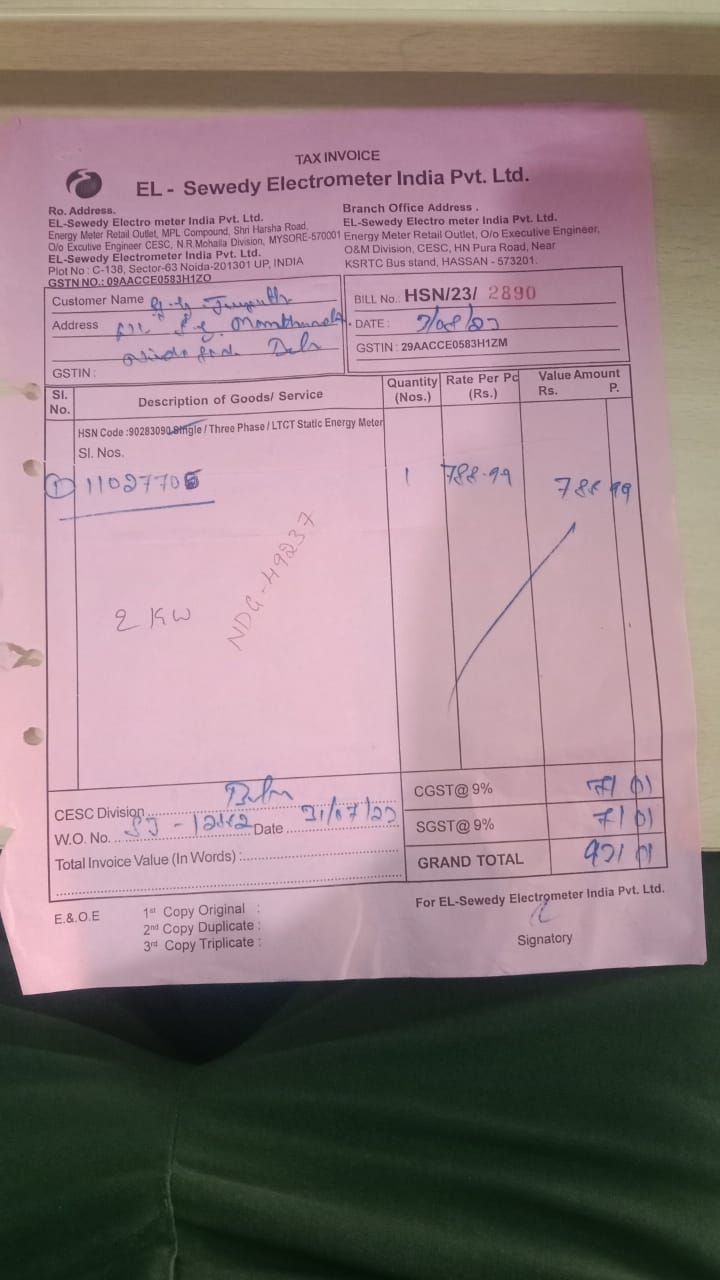 TAX INVOICE
EL - Sewedy Electrometer India Pvt. Ltd.
Ro. Address.
EL-Sewedy Electro meter India Pvt. Ltd.
Energy Meter Retail Outlet, MPL Compound, Shri Harsha Road,
O/o Excutive Engineer CESC, N.R.Mohalla Division, MYSORE-570001
EL-Sewedy Electrometer India Pvt. Ltd.
Plot No : C-138, Sector-63 Noida-201301 UP, INDIA
GSTN NO.: 09AACCE0583H1ZO
Branch Office Address .
EL-Sewedy Electro meter India Pvt. Ltd.
Energy Meter Retail Outlet, O/o Executive Engineer,
O&M Division, CESC, HN Pura Road, Near
KSRTC Bus stand, HASSAN - 573201.
Customer Name
Address
GSTIN :
BILL No.: HSN/23/ 2890
DATE :
GSTIN : 29AACCE0583H1ZM
Sl. No. Description of Goods/ Service Quantity (Nos.) Rate Per Pc (Rs.) Value Amount Rs. P.
HSN Code :90283090 Single / Three Phase / LTCT Static Energy Meter
Sl. Nos.
1 11027705 1 788.99 788 99
NDG-49237
2 KW
CESC Division
W.O. No. Date 31/07/23
Total Invoice Value (In Words) :
CGST@ 9% 71 01
SGST@ 9% 71 01
GRAND TOTAL 931 01
E.&.O.E
1st Copy Original :
2nd Copy Duplicate :
3rd Copy Triplicate :
For EL-Sewedy Electrometer India Pvt. Ltd.
Signatory